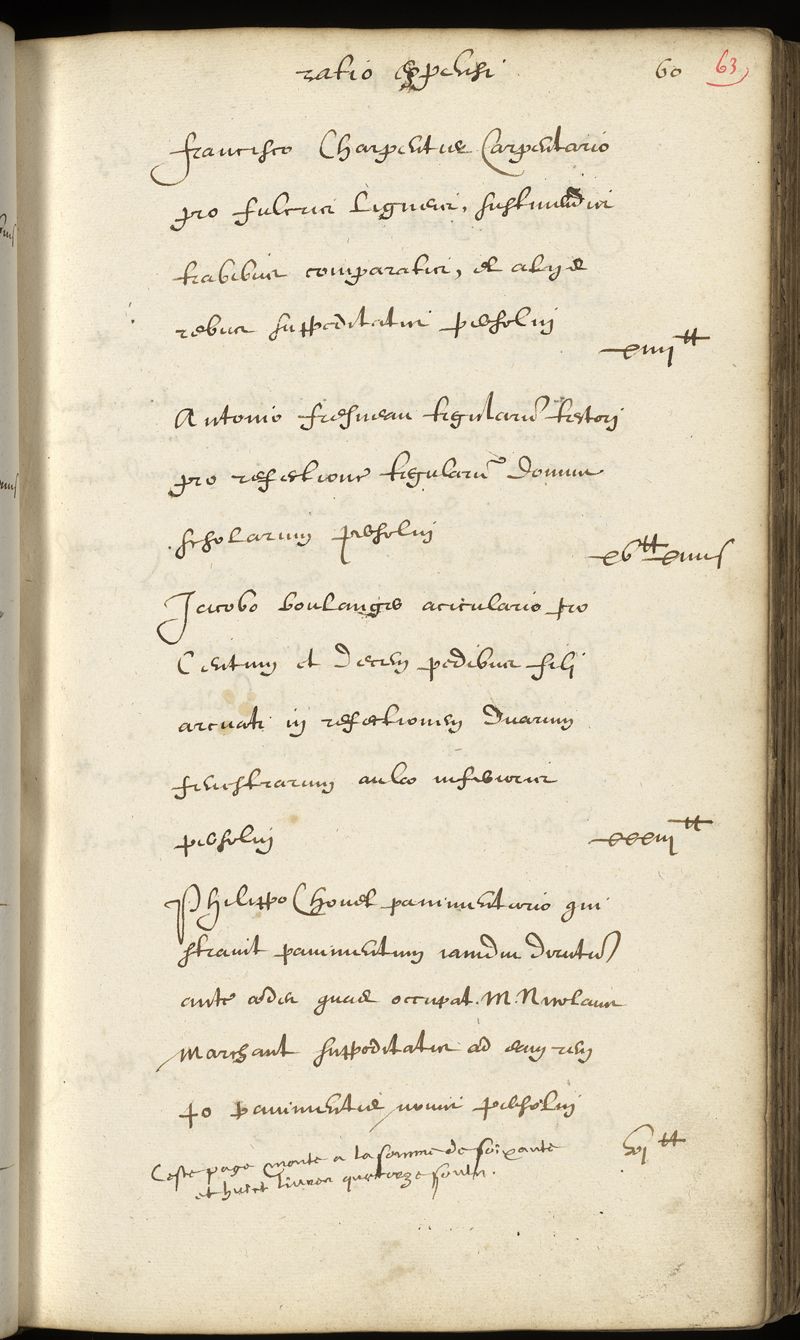 ratio expensi 60 63
Francisco Charpentier Carpentario
pro fulcris ligneis, sustinendis
trabibus comparatis, et alijs
rebus suppeditatis persolui
xiiii ₶
Antonio fresneau tegularu͂ tectorj
pro refectione tegularu͂ domus
scholarum persolui
xv ₶ xiiii s
Jacobo boulanger aciculario pro
Centum et decem pedibus filj
arcuati in refectionem duarum
fenestrarum aulæ inferioris
persolui
xxxiii ₶
Philippo Chouet pauimentario qui
strauit pauimentum iamdiu dirutu͂
ante ædes quas occupat. M. Nicolaus
Marchant suppeditatis ad eam rem
pauimentis nouis persolui
vi ₶
Ceste page monte a la somme de soixante
et huict liures quatorze soulz.